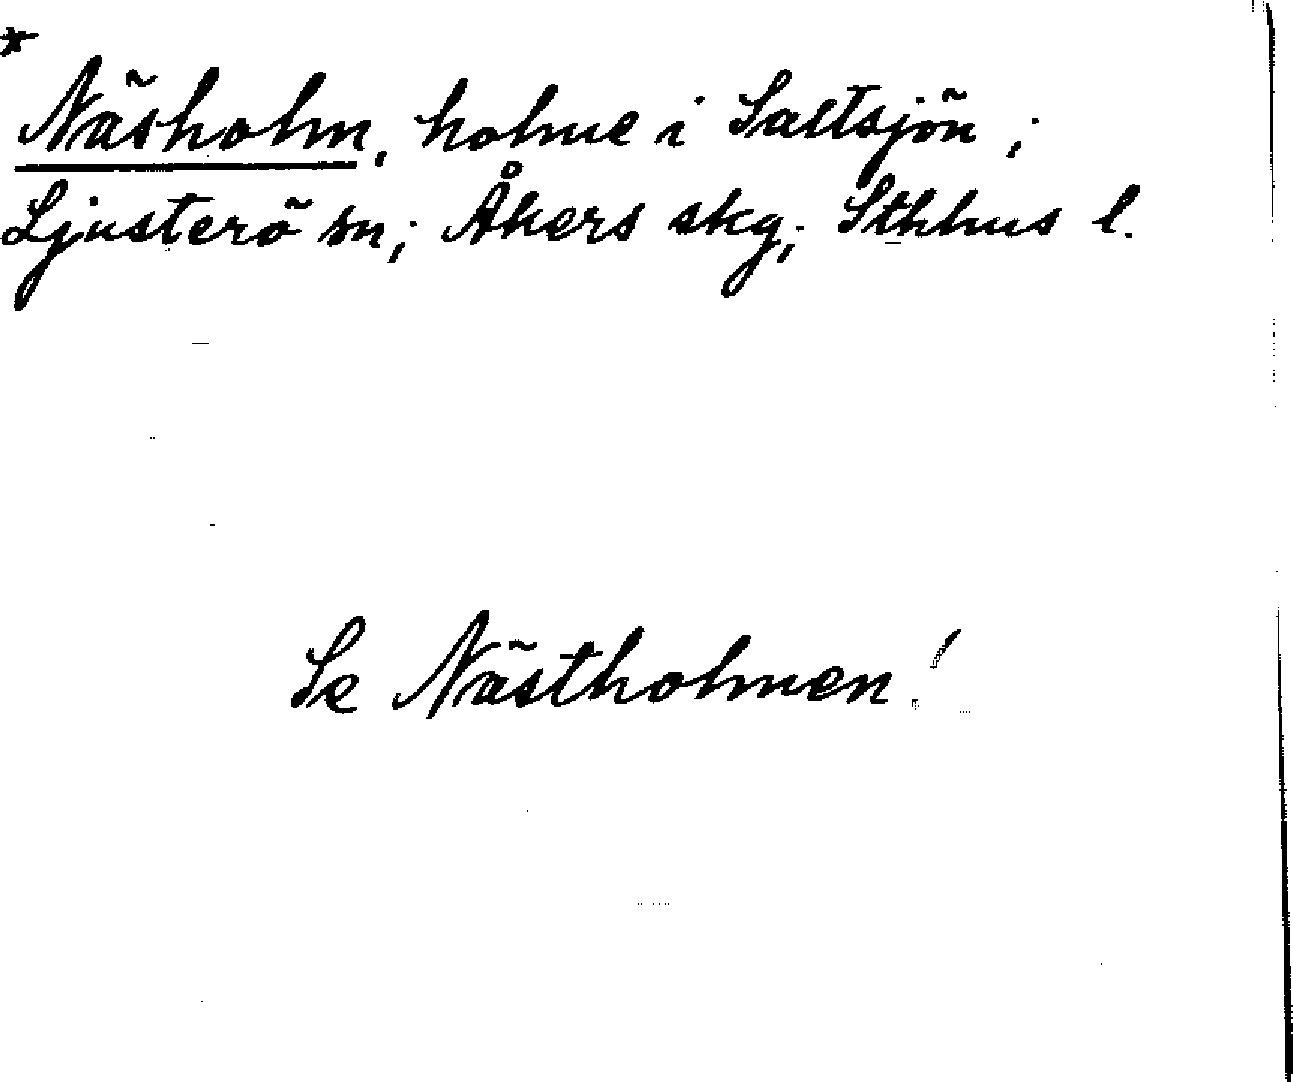 *
Näsholm, holme i Saltsjön;
Ljusterö sn; Åkers skg; Sthlms l.
Se Nästholmen!